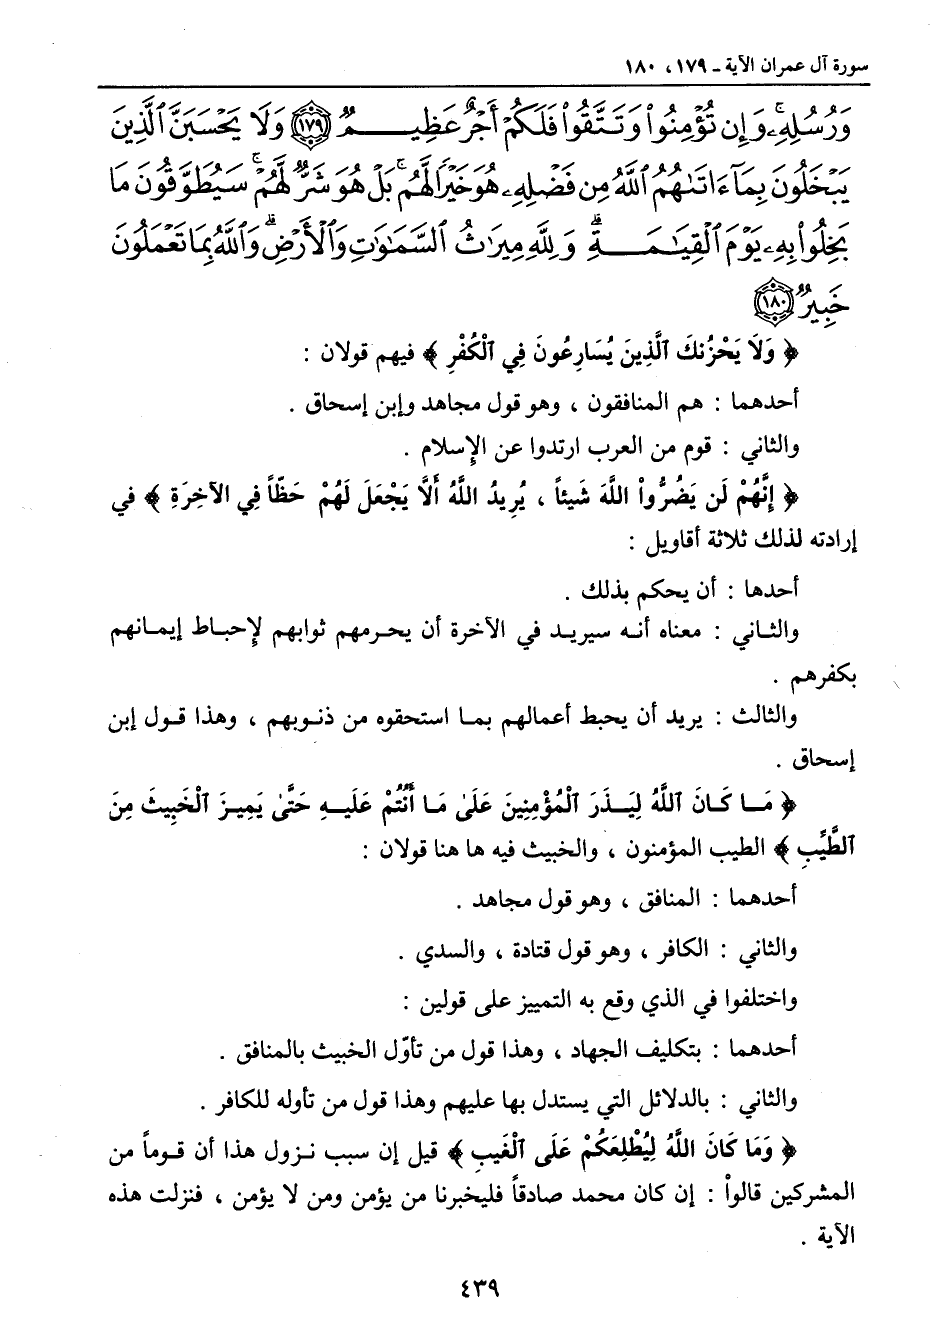 سورة آل عمران الآية ـ ١٧٩، ١٨٠
وَرُسُلِهِۦۚ وَإِن تُؤْمِنُوا۟ وَتَتَّقُوا۟ فَلَكُمْ أَجْرٌ عَظِيمٌ ١٧٩ وَلَا يَحْسَبَنَّ ٱلَّذِينَ
يَبْخَلُونَ بِمَآ ءَاتَىٰهُمُ ٱللَّهُ مِن فَضْلِهِۦ هُوَ خَيْرًا لَّهُمۚ بَلْ هُوَ شَرٌّ لَّهُمْۖ سَيُطَوَّقُونَ مَا
بَخِلُوا۟ بِهِۦ يَوْمَ ٱلْقِيَٰمَةِۗ وَلِلَّهِ مِيرَٰثُ ٱلسَّمَٰوَٰتِ وَٱلْأَرْضِۗ وَٱللَّهُ بِمَا تَعْمَلُونَ
خَبِيرٌ ١٨٠
﴿ وَلَا يَحْزُنكَ ٱلَّذِينَ يُسَارِعُونَ فِي ٱلْكُفْرِ ﴾ فيهم قولان :
أحدهما : هم المنافقون ، وهو قول مجاهد وإبن إسحاق .
والثاني : قوم من العرب ارتدوا عن الإسلام .
﴿ إِنَّهُمْ لَن يَضُرُّوا۟ اللَّهَ شَيئاً ، يُرِيدُ اللَّهُ أَلَّا يَجْعَلَ لَهُمْ حَظّاً فِي الآخِرَةِ ﴾ في
إرادته لذلك ثلاثة أقاويل :
أحدها : أن يحكم بذلك .
والثاني : معناه أنه سيريد في الآخرة أن يحرمهم ثوابهم لإحباط إيمانهم
بكفرهم .
والثالث : يريد أن يحبط أعمالهم بما استحقوه من ذنوبهم ، وهذا قول إبن
إسحاق .
﴿ مَا كَانَ ٱللَّهُ لِيَذَرَ ٱلْمُؤْمِنِينَ عَلَىٰ مَا أَنْتُمْ عَلَيهِ حَتَّىٰ يَمِيزَ ٱلْخَبِيثَ مِنَ
ٱلطَّيِّبِ ﴾ الطيب المؤمنون ، والخبيث فيه ها هنا قولان :
أحدهما : المنافق ، وهو قول مجاهد .
والثاني : الكافر ، وهو قول قتادة ، والسدي .
واختلفوا في الذي وقع به التمييز على قولين :
أحدهما : بتكليف الجهاد ، وهذا قول من تأوّل الخبيث بالمنافق .
والثاني : بالدلائل التي يستدل بها عليهم وهذا قول من تأوله للكافر .
﴿ وَمَا كَانَ اللَّهُ لِيُطْلِعَكُمْ عَلَى ٱلْغَيبِ ﴾ قيل إن سبب نزول هذا أن قوماً من
المشركين قالواْ : إن كان محمد صادقاً فليخبرنا من يؤمن ومن لا يؤمن ، فنزلت هذه
الآية .
٤٣٩